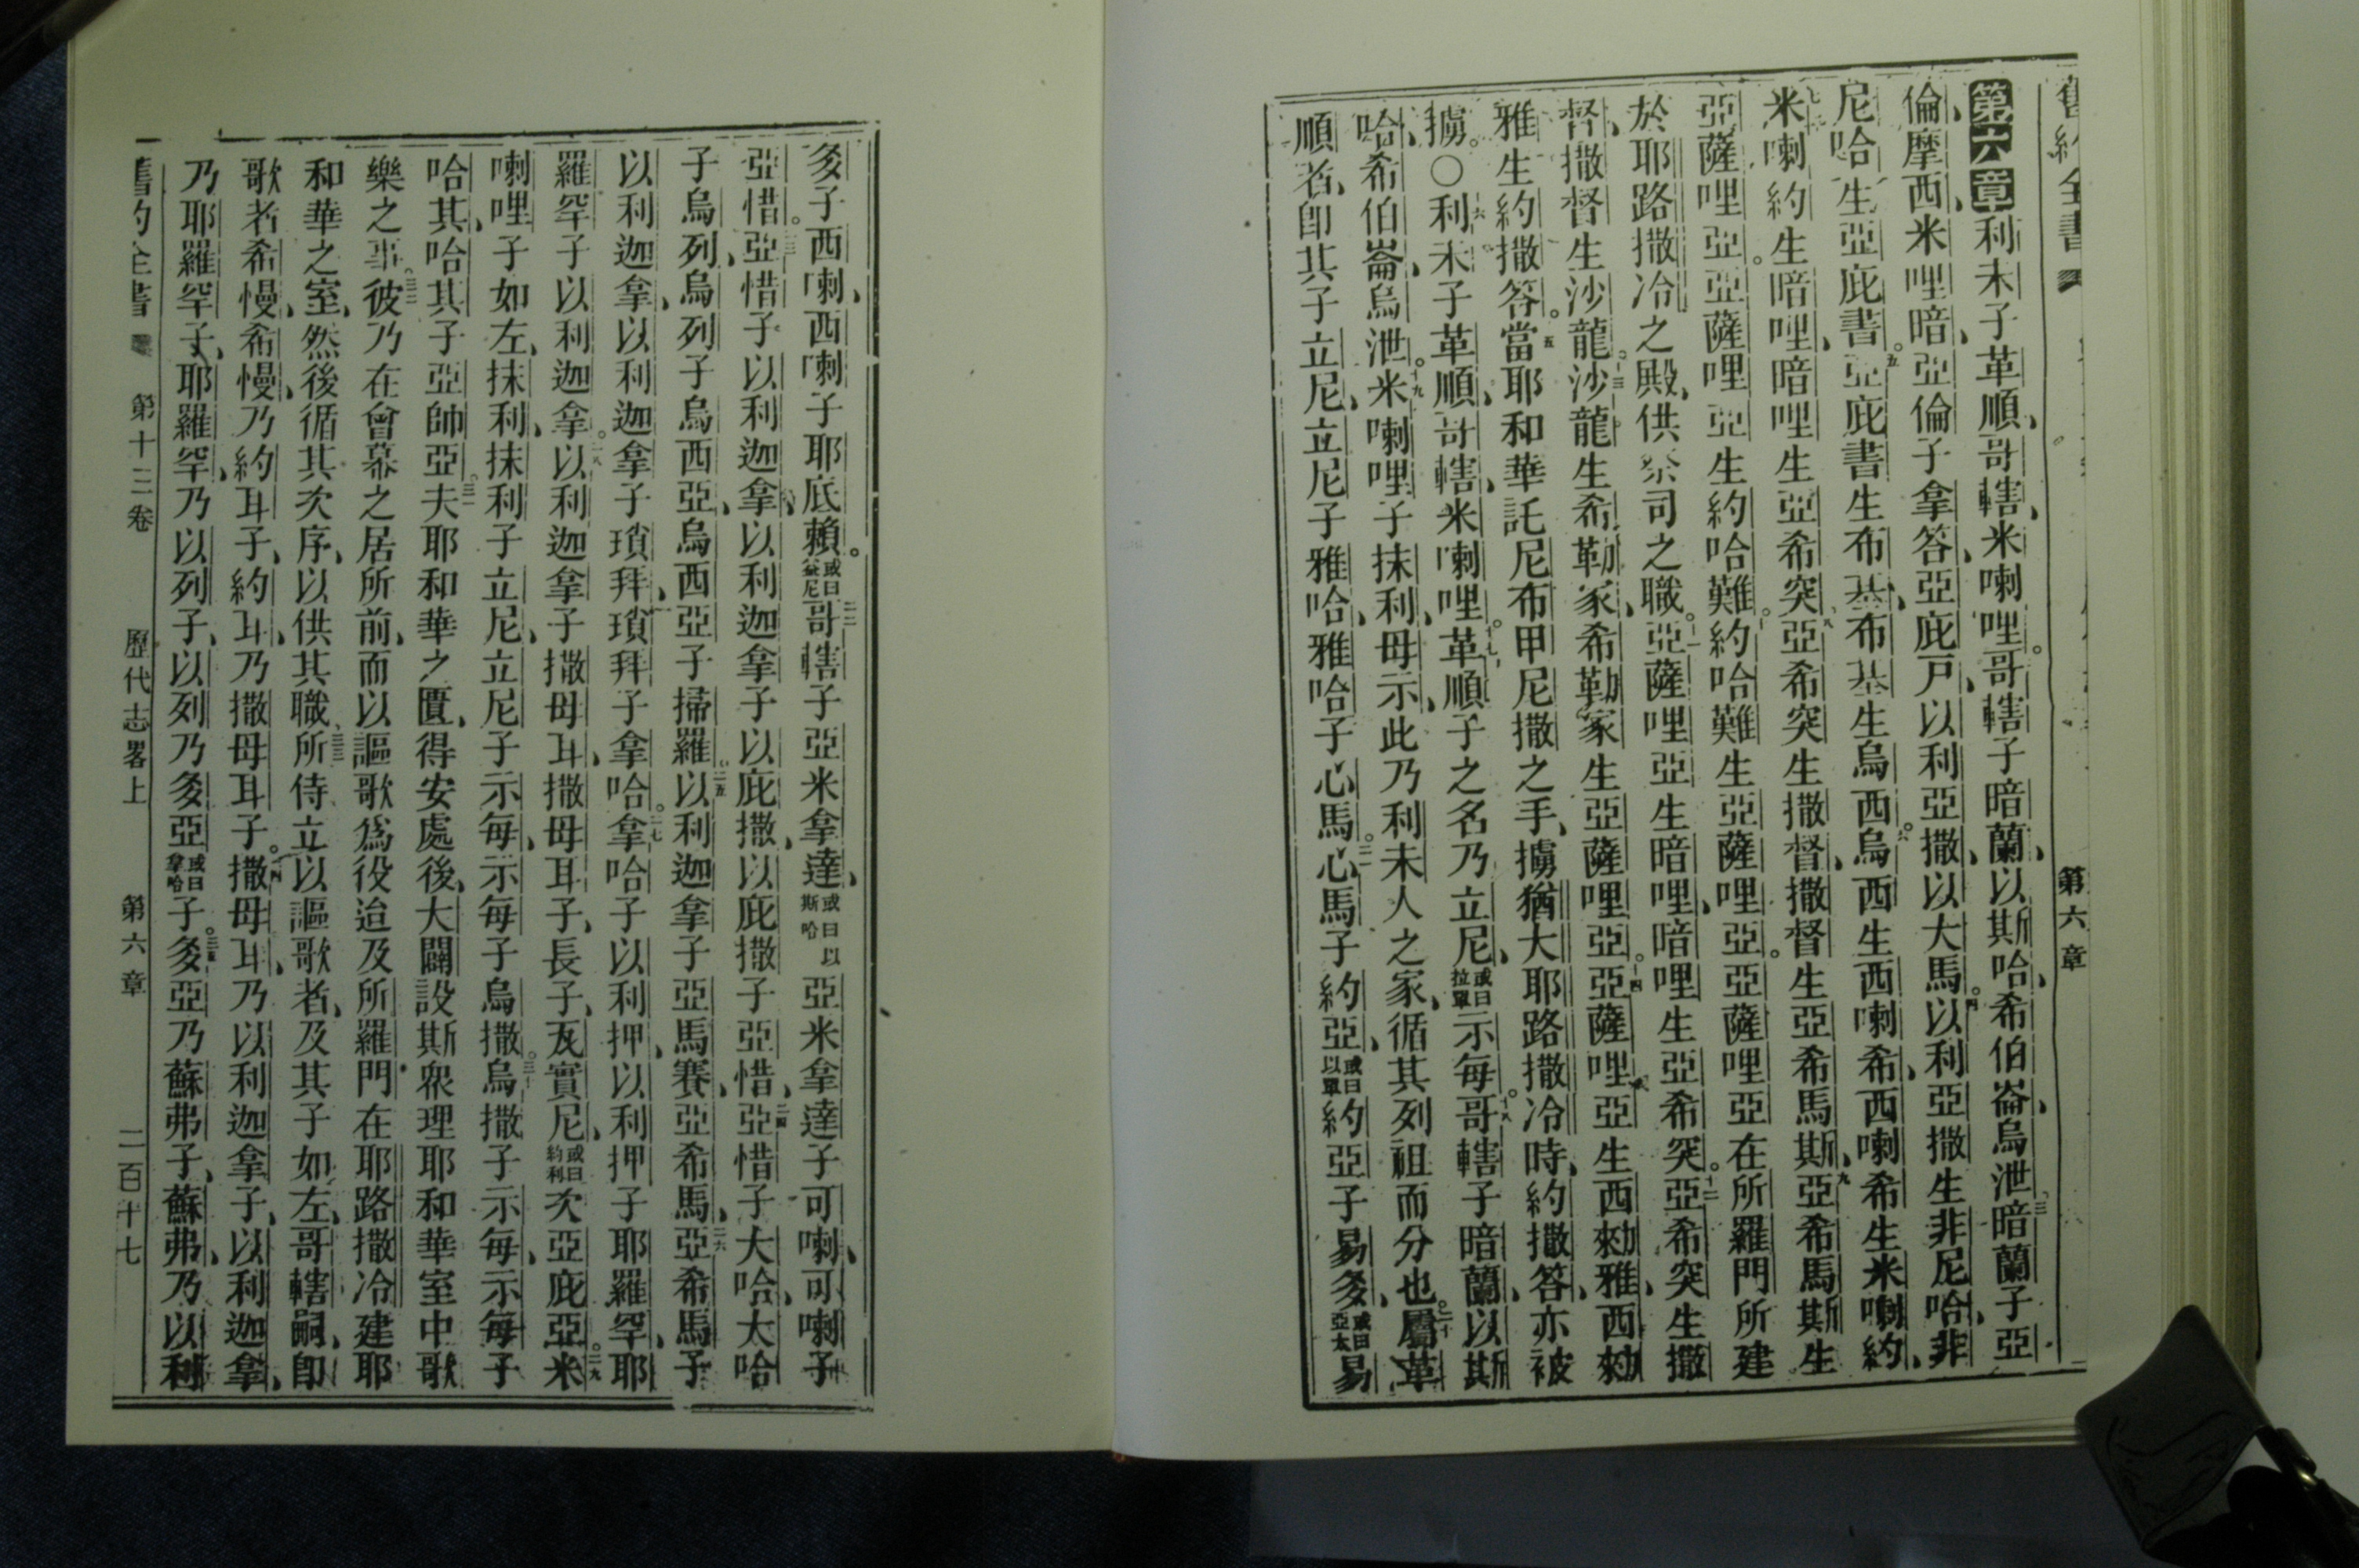 舊約全書 第六章
第六章利未子革順、哥轄、米喇哩。哥轄子暗蘭、以斯哈、希伯崙、烏泄三暗蘭子亞
倫、摩西、米哩暗、亞倫子拿答、亞庇戸、以利亞撒、以大馬。四以利亞撒生非尼哈、非
尼哈生亞庇書。五亞庇書生布基、布基生烏西。六烏西生西喇希、西喇希生米喇約、
七米喇約生暗哩、暗哩生亞希突、八亞希突生撒督、撒督生亞希馬斯、九亞希馬斯生
亞薩哩亞。亞薩哩亞生約哈難。十約哈難生亞薩哩亞。亞薩哩亞在所羅門所建
於耶路撒冷之殿、供祭司之職。十一亞薩哩亞生暗哩、暗哩生亞希突。十二亞希突生撒
督、撒督生沙龍。十三沙龍生希勒家、希勒家生亞薩哩亞。十四亞薩哩亞生西㓨雅、西㓨
雅生約撒答。十五當耶和華託尼布甲尼撒之手、擄猶大耶路撒冷時、約撒答亦被
擄。〇十六利未子革順、哥轄、米喇哩。十七革順子之名乃立尼、或曰拉單示每。十八哥轄子暗蘭、以斯
哈、希伯崙、烏泄。十九米喇哩子抹利、母示、此乃利未人之家、循其列祖而分也。二十屬革
順者、卽其子立尼、立尼子雅哈、雅哈子心馬。二一心馬子約亞、或曰以單約亞子易㕛、或曰亞太易
㕛子西喇、西喇子耶底賴。或曰益尼二二哥轄子亞米拿達、或曰以斯哈亞米拿達子可喇、可喇子
亞惜。二三亞惜子以利迦拿、以利迦拿子以庇撒、以庇撒子亞惜、二四亞惜子大哈、大哈
子烏列、烏列子烏西亞、烏西亞子掃羅。二五以利迦拿子亞馬賽、亞希馬、二六亞希馬子
以利迦拿、以利迦拿子瑣拜、瑣拜子拿哈。二七拿哈子以利押、以利押子耶羅罕、耶
羅罕子以利迦拿。二八以利迦拿子撒母耳、撒母耳子、長子、瓦實尼、或曰約利次亞庇亞。二九米
喇哩子如左、抹利、抹利子立尼、立尼子示每、示每子烏撒。三十烏撒子示每、示每子
哈其、哈其子亞帥亞。三一夫耶和華之匱、得安處後、大闢設斯衆理耶和華室中歌
樂之事。三二彼乃在會幕之居所前、而以謳歌爲役迨及所羅門在耶路撒冷建耶
和華之室、然後循其次序、以供其職三三所侍立以謳歌者、及其子如左、哥轄嗣、卽
歌者希慢、希慢乃約耳子、約耳乃撒母耳子。三四撒母耳、乃以利迦拿子、以利迦拿、
乃耶羅罕子、耶羅罕、乃以列子、以列乃㕛亞或曰拿哈子。三五㕛亞乃蘇弗子、蘇弗、乃以利
舊約全書 第十三卷 歷代志畧上 第六章 二百十七